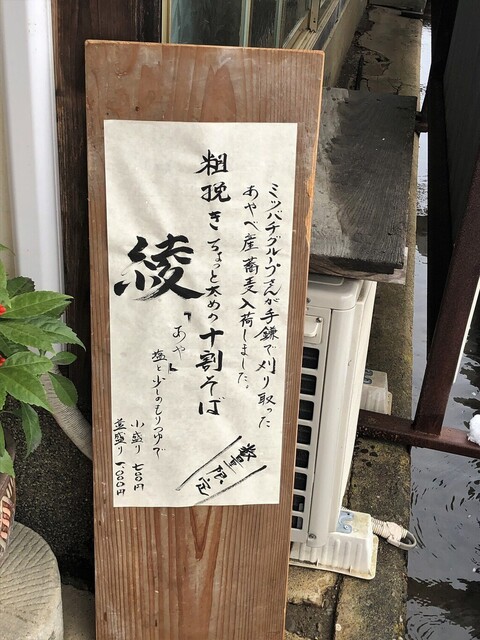 ミツバチグループさんが手鎌で刈り取った
あやべ産蕎麦入荷しました。
粗挽きちょっと太めの十割そば
綾
「あや」
塩と少しのもりつゆで
小盛り 七00円
並盛り 一、000円
数量限定